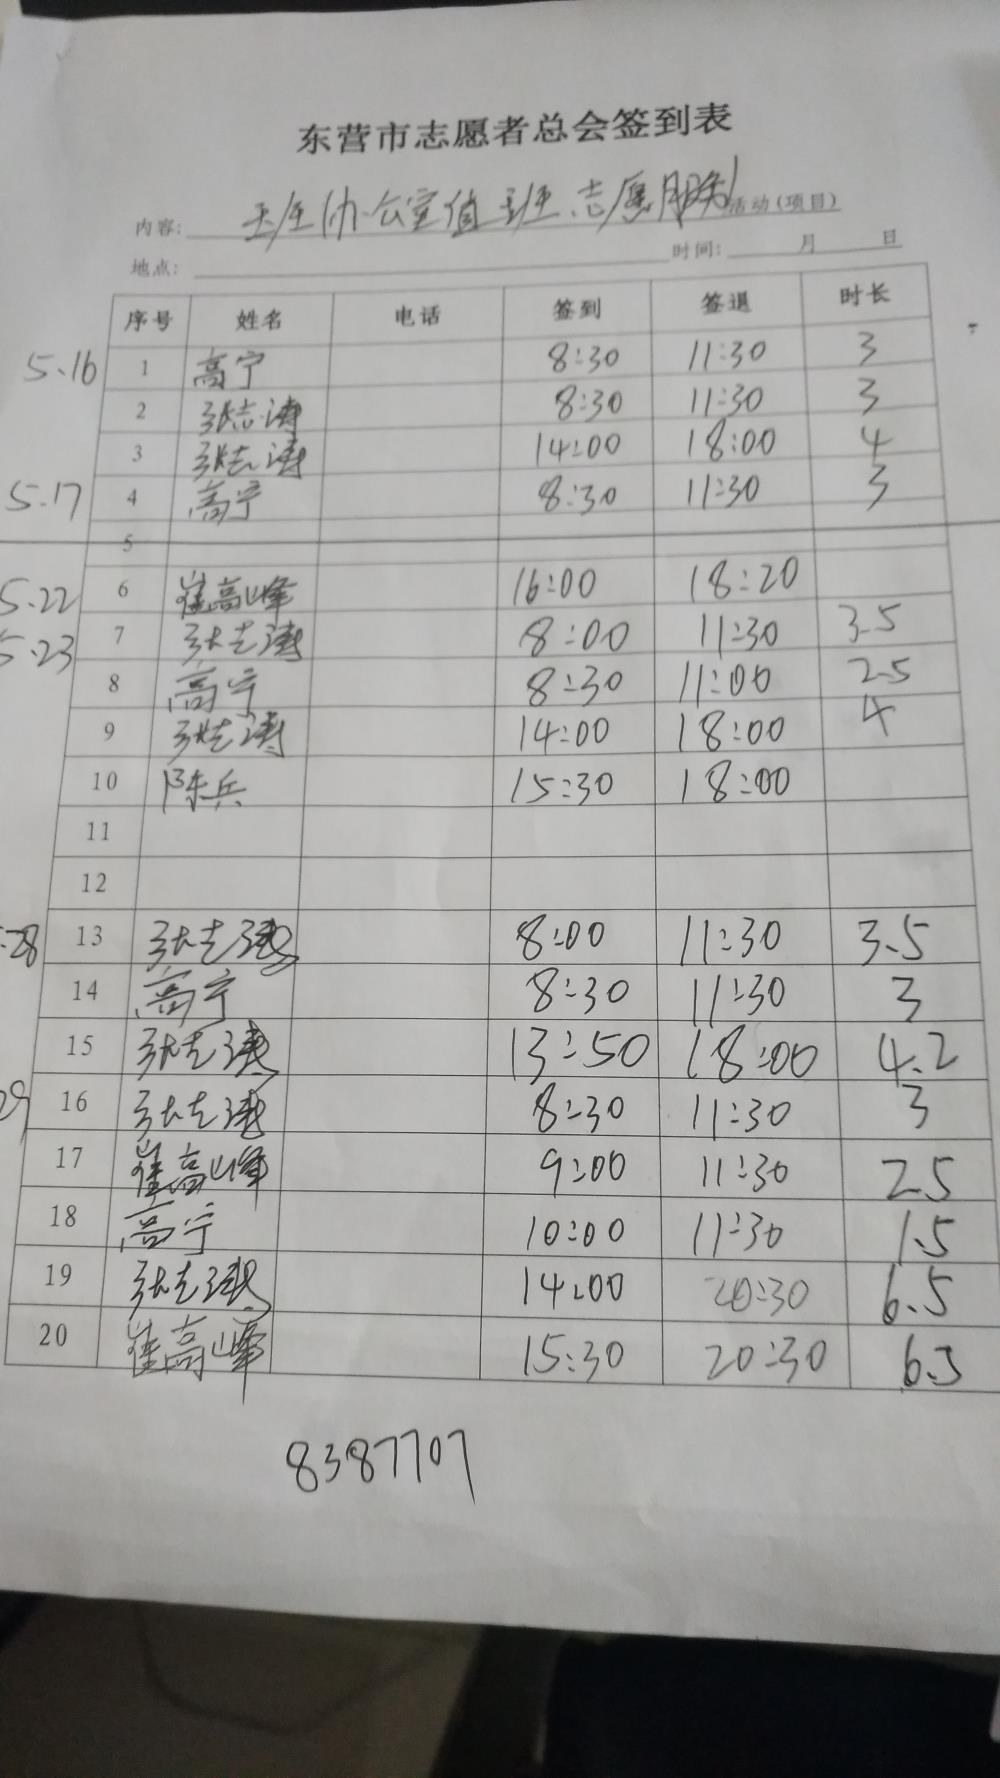 东营市志愿者总会签到表
内容: 办公室值班志愿服务 活动(项目)
地点: 时间: 月 日
序号 姓名 电话 签到 签退 时长
5.16 1 高宁 8:30 11:30 3
2 张志涛 8:30 11:30 3
3 张志涛 14:00 18:00 4
5.17 4 高宁 8:30 11:30 3
5
5.22 6 崔高峰 16:00 18:20
5.23 7 张志涛 8:00 11:30 3.5
8 高宁 8:30 11:00 2.5
9 张志涛 14:00 18:00 4
10 陈兵 15:30 18:00
11
12
.28 13 张志涛 8:00 11:30 3.5
14 高宁 8:30 11:30 3
15 张志涛 13:50 18:00 4.2
29 16 张志涛 8:30 11:30 3
17 崔高峰 9:00 11:30 2.5
18 高宁 10:00 11:30 1.5
19 张志涛 14:00 20:30 6.5
20 崔高峰 15:30 20:30 6.5
8387707